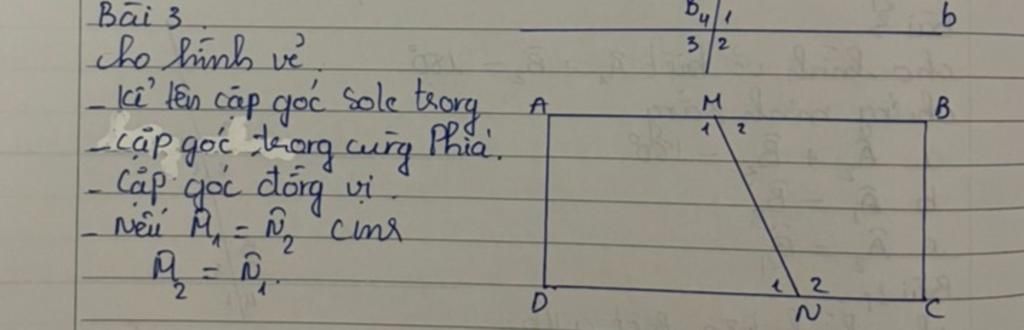 Bài 3
cho hình vẽ.
- Kể tên cặp góc sole trong
- Cặp góc trong cùng Phía.
- Cặp góc đồng vị.
- Nếu M̂₁ = N̂₂ CMR
M̂₂ = N̂₁.
B 4 1 b
3 2
A M B
1 2
1 2
D N C